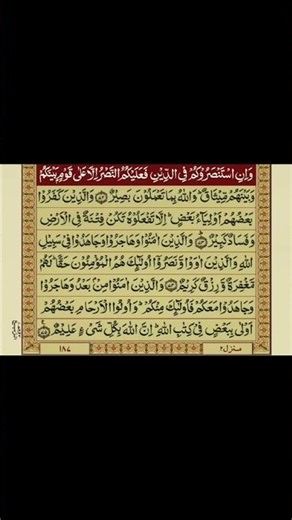 وَاِنِ اسْتَنْصَرُوْكُمْ فِي الدِّيْنِ فَعَلَيْكُمُ النَّصْرُ اِلَّا عَلٰى قَوْمٍۭ بَيْنَكُمْ
وَبَيْنَهُمْ مِّيْثَاقٌ ؕ وَاللّٰهُ بِمَا تَعْمَلُوْنَ بَصِيْرٌ ﴿۷۲﴾ وَالَّذِيْنَ كَفَرُوْا
بَعْضُهُمْ اَوْلِيَآءُ بَعْضٍ ؕ اِلَّا تَفْعَلُوْهُ تَكُنْ فِتْنَةٌ فِي الْاَرْضِ
وَفَسَادٌ كَبِيْرٌ ﴿۷۳﴾ وَالَّذِيْنَ اٰمَنُوْا وَهَاجَرُوْا وَجَاهَدُوْا فِيْ سَبِيْلِ
اللّٰهِ وَالَّذِيْنَ اٰوَوْا وَّنَصَرُوْۤا اُولٰٓئِكَ هُمُ الْمُؤْمِنُوْنَ حَقًّا ؕ لَهُمْ
مَّغْفِرَةٌ وَّرِزْقٌ كَرِيْمٌ ﴿۷۴﴾ وَالَّذِيْنَ اٰمَنُوْا مِنْۢ بَعْدُ وَهَاجَرُوْا
وَجَاهَدُوْا مَعَكُمْ فَاُولٰٓئِكَ مِنْكُمْ ؕ وَاُولُوا الْاَرْحَامِ بَعْضُهُمْ
اَوْلٰى بِبَعْضٍ فِيْ كِتٰبِ اللّٰهِ ؕ اِنَّ اللّٰهَ بِكُلِّ شَيْءٍ عَلِيْمٌ ﴿۷۵﴾
منزل ۲
۱۸۷